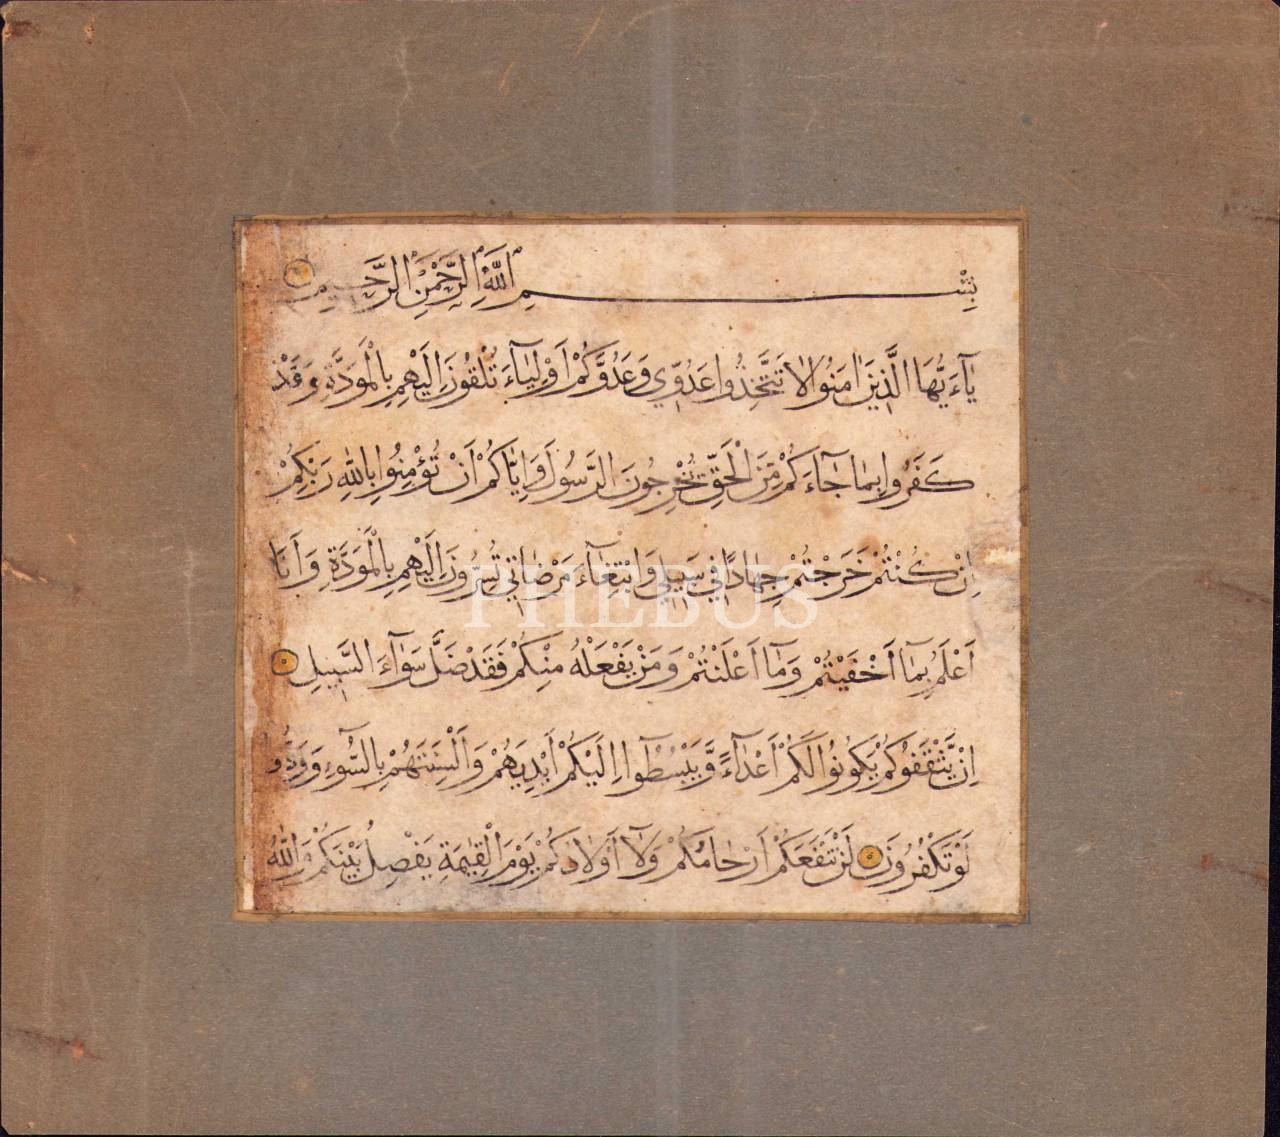 بِسْمِ اللّٰهِ الرَّحْمٰنِ الرَّحِيمِ
يَآءَيُّهَا الَّذِينَ اٰمَنُوا لَا تَتَّخِذُوا عَدُوِّي وَعَدُوَّكُمْ اَوْلِيَآءَ تُلْقُونَ اِلَيْهِمْ بِالْمَوَدَّةِ وَقَدْ
كَفَرُوا بِمَا جَآءَكُمْ مِّنَ الْحَقِّ يُخْرِجُونَ الرَّسُولَ وَاِيَّاكُمْ اَنْ تُؤْمِنُوا بِاللّٰهِ رَبِّكُمْ
اِنْ كُنْتُمْ خَرَجْتُمْ جِهَادًا فِي سَبِيلِي وَابْتِغَآءَ مَرْضَاتِي تُسِرُّونَ اِلَيْهِمْ بِالْمَوَدَّةِ وَاَنَا
PHEBUS
اَعْلَمُ بِمَآ اَخْفَيْتُمْ وَمَآ اَعْلَنْتُمْ وَمَنْ يَفْعَلْهُ مِنْكُمْ فَقَدْ ضَلَّ سَوَآءَ السَّبِيلِ
اِنْ يَّثْقَفُوكُمْ يَكُونُوا لَكُمْ اَعْدَآءً وَّيَبْسُطُوٓا اِلَيْكُمْ اَيْدِيَهُمْ وَاَلْسِنَتَهُمْ بِالسُّوٓءِ وَوَدُّوا
لَوْ تَكْفُرُونَ لَنْ تَنْفَعَكُمْ اَرْحَامُكُمْ وَلَآ اَوْلَادُكُمْ يَوْمَ الْقِيٰمَةِ يَفْصِلُ بَيْنَكُمْ وَاللّٰهُ